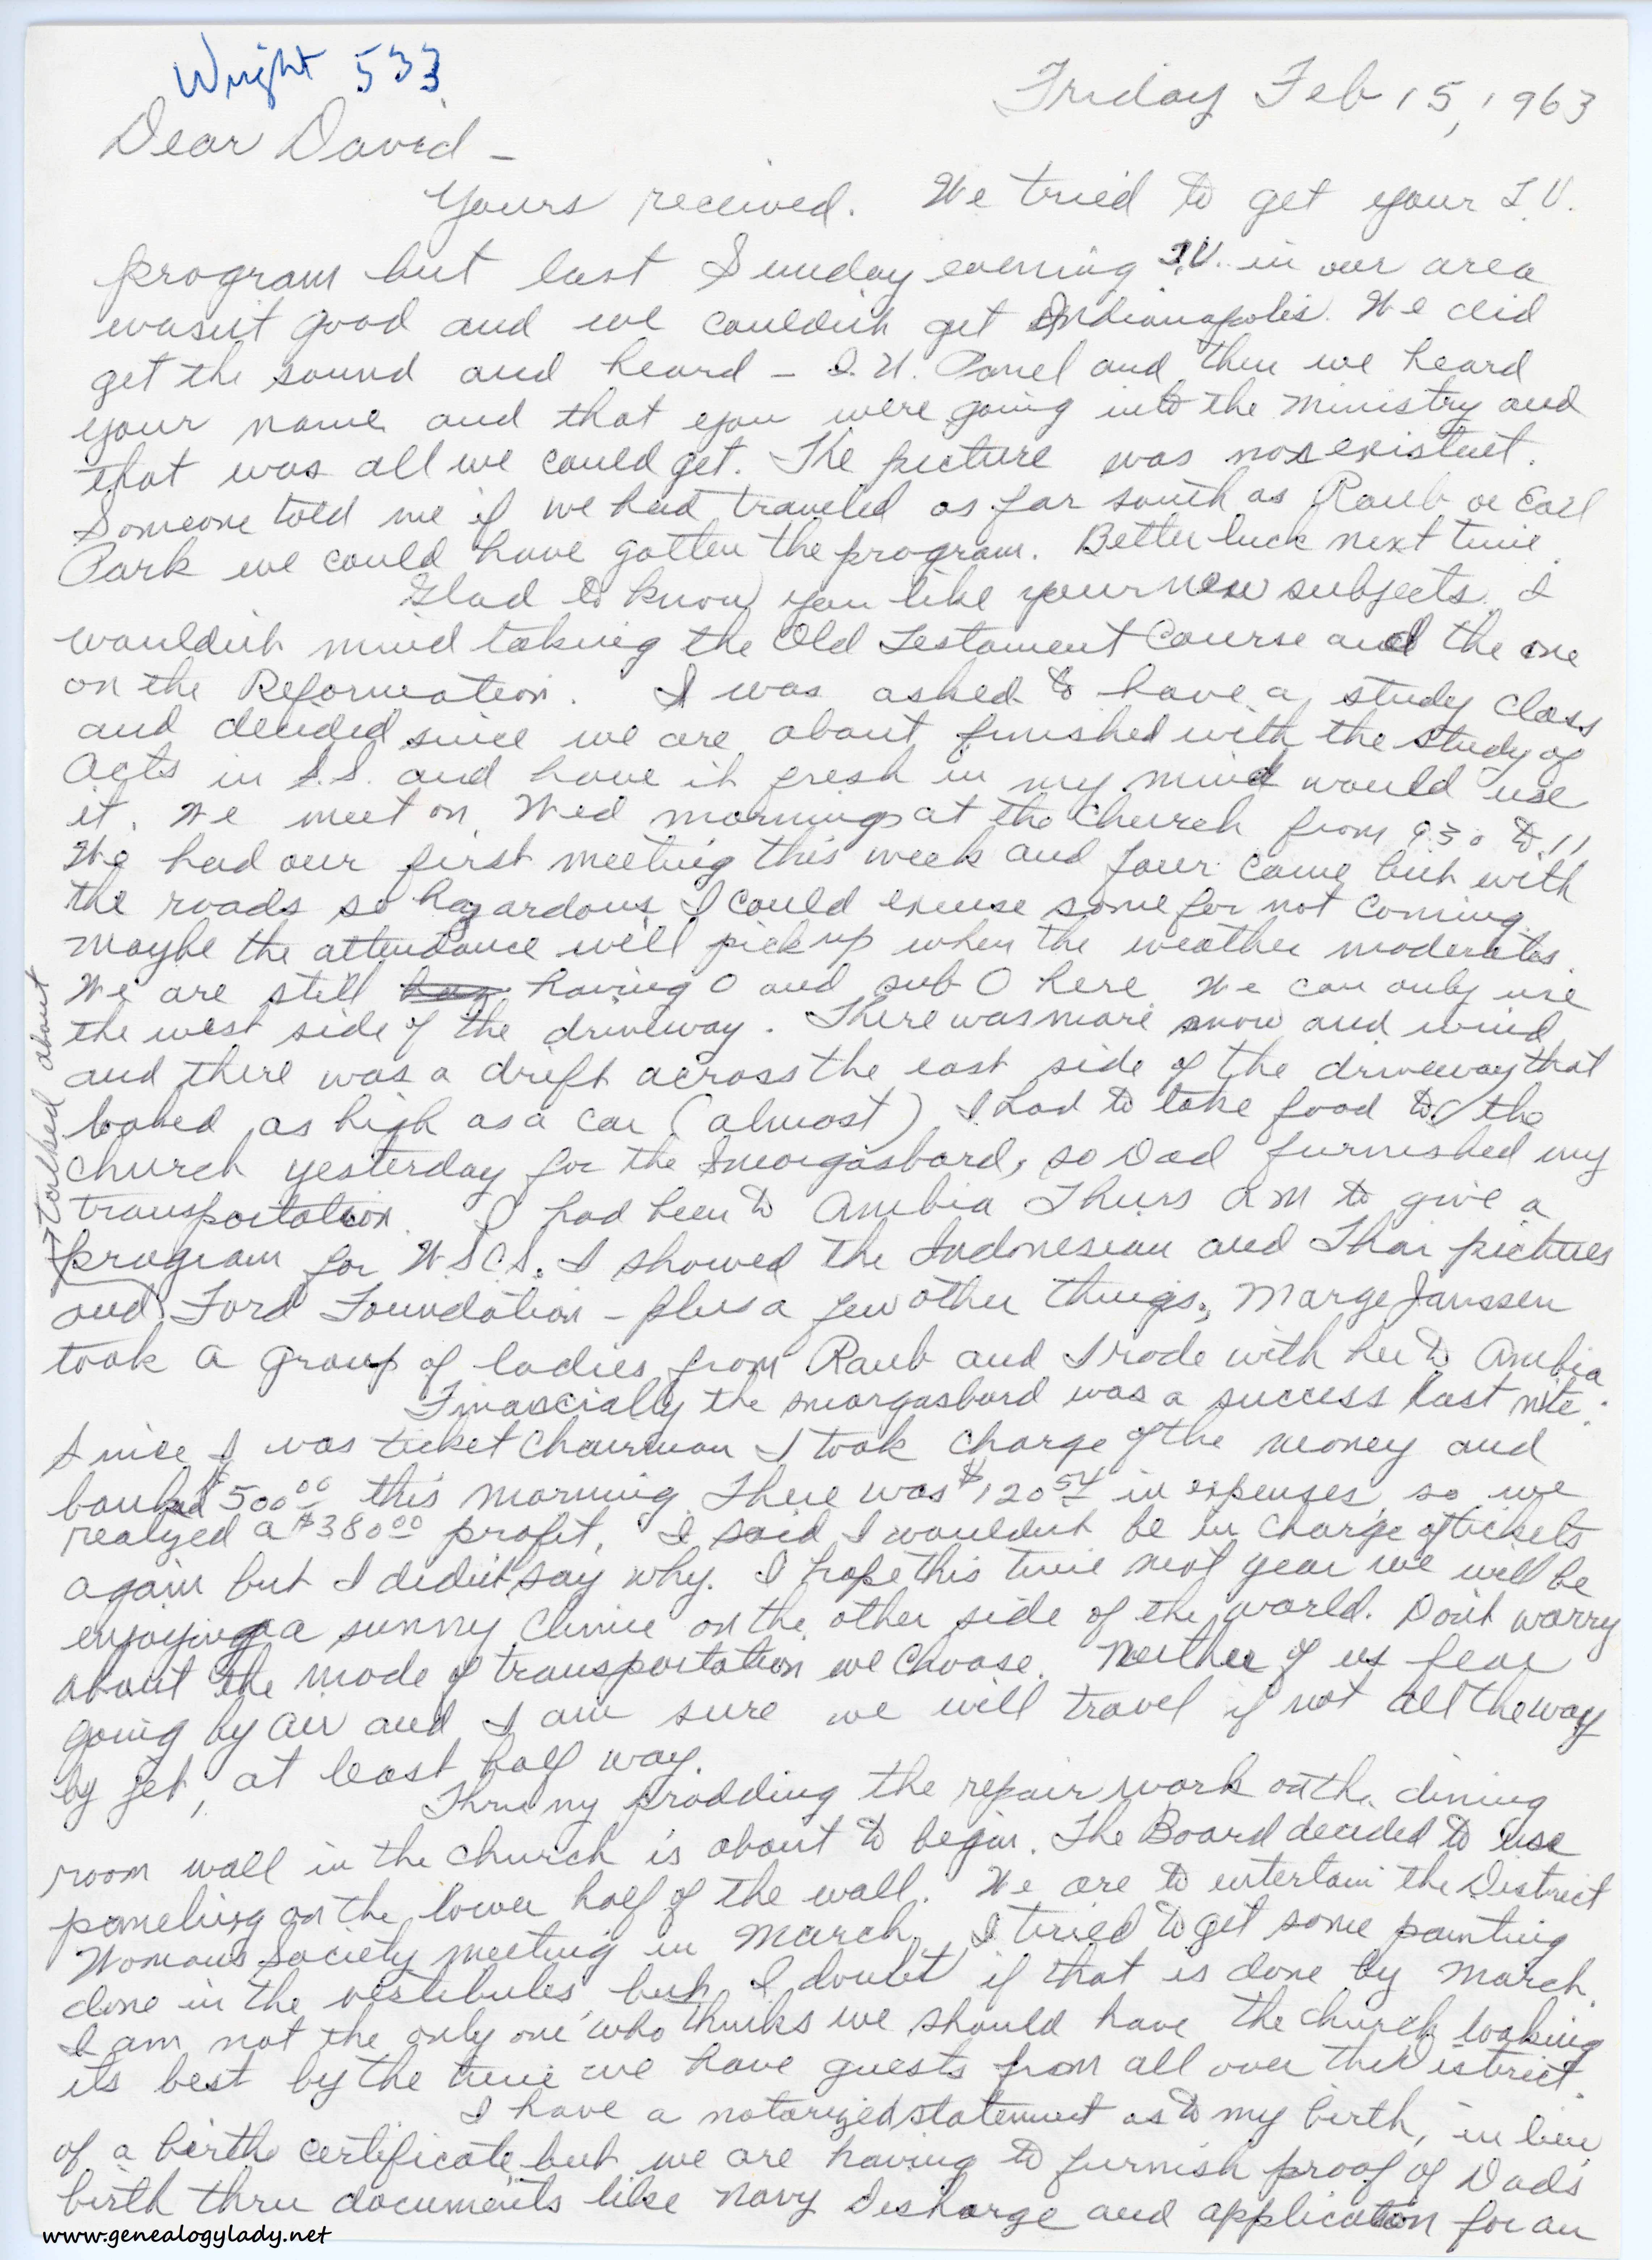 Wright 533
Friday Feb 15, 1963
Dear David -
Yours received. We tried to get your T.V.
program but last Sunday evening T.V. in our area
wasn't good and we couldn't get Indianapolis. We did
get the sound and heard - I.U. Panel and then we heard
your name and that you were going into the ministry and
that was all we could get. The picture was non existent.
Someone told me if we had traveled as far south as Raub or Earl
Park we could have gotten the program. Better luck next time.
Glad to know you like your new subjects. I
wouldn't mind taking the Old Testament Course and the one
on the Reformation. I was asked to have a study class
and decided since we are about finished with the study of
Acts in S.S. and have it fresh in my mind would use
it. We meet on Wed mornings at the church from 9:30 to 11
We had our first meeting this week and four came but with
the roads so hazardous I could excuse some for not coming.
Maybe the attendance will pick up when the weather moderates.
We are still having 0 and sub 0 here. We can only use
the west side of the driveway. There was more snow and wind
and there was a drift across the east side of the driveway that
looked as high as a car (almost) I had to take food to the
church yesterday for the Smorgasbord, so Dad furnished my
transportation. I had been to Ambia Thurs AM to give a
program for WSCS. I showed the Indonesian and Thai pictures
→ talked about
and Ford Foundation - plus a few other things. Marge Janssen
took a group of ladies from Raub and I rode with her to Ambia
Financially the smorgasbord was a success last nite.
Since I was ticket chairman I took charge of the money and
banked $500.00 this morning. There was $120.54 in expenses, so we
realized a $380.00 profit. I said I wouldn't be in charge of tickets
again but I didn't say why. I hope this time next year we will be
enjoying a sunny clime on the other side of the world. Don't worry
about the mode of transportation we choose. Neither of us fear
going by air and I am sure we will travel if not all the way
by jet, at least half way.
Thru my prodding the repair work on the dining
room wall in the church is about to begin. The Board decided to use
paneling on the lower half of the wall. We are to entertain the District
Womans Society meeting in March. I tried to get some painting
done in the vestibules, but I doubt if that is done by March.
I am not the only one who thinks we should have the church looking
its best by the time we have guests from all over the District.
I have a notarized statement as to my birth, in lieu
of a birth certificate but we are having to furnish proof of Dads
birth thru documents like Navy discharge and application for an
www.genealogylady.net